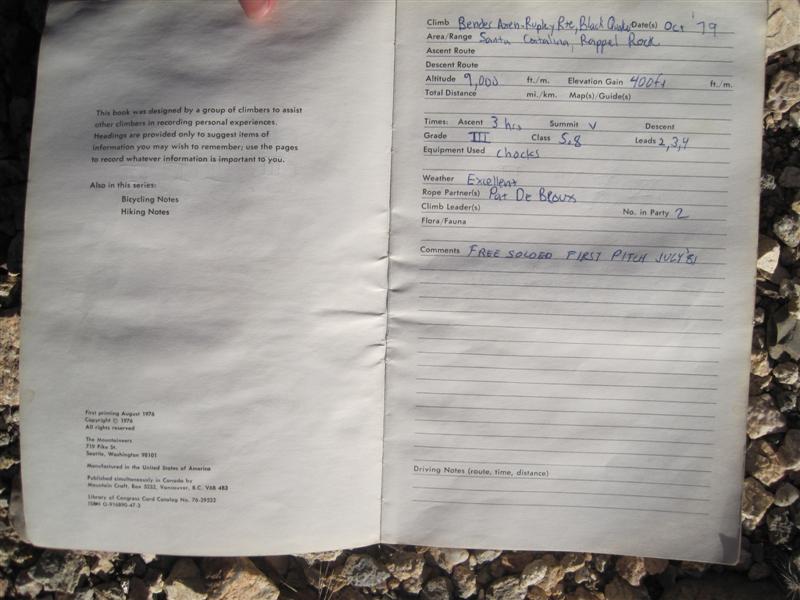 This book was designed by a group of climbers to assist
other climbers in recording personal experiences.
Headings are provided only to suggest items of
information you may wish to remember; use the pages
to record whatever information is important to you.
Also in this series:
Bicycling Notes
Hiking Notes
First printing August 1976
Copyright © 1976
All rights reserved
The Mountaineers
719 Pike St.
Seattle, Washington 98101
Manufactured in the United States of America
Published simultaneously in Canada by
Mountain Craft, Box 5232, Vancouver, B.C. V6B 4B3
Library of Congress Card Catalog No. 76-29523
ISBN 0-916890-47-3
Climb Bender Axen-Rupley Rte, Black Date(s) Oct '79
Area/Range Santa Catalina, Rappel Rock
Ascent Route
Descent Route
Altitude 9,000 ft./m. Elevation Gain 400ft ft./m.
Total Distance mi./km. Map(s)/Guide(s)
Times: Ascent 3 hrs Summit Descent
Grade III Class 5.8 Leads 2,3,4
Equipment Used chocks
Weather Excellent
Rope Partner(s) Pat De
Climb Leader(s) No. in Party 2
Flora/Fauna
Comments FREE SOLOED FIRST PITCH JULY '81
Driving Notes (route, time, distance)